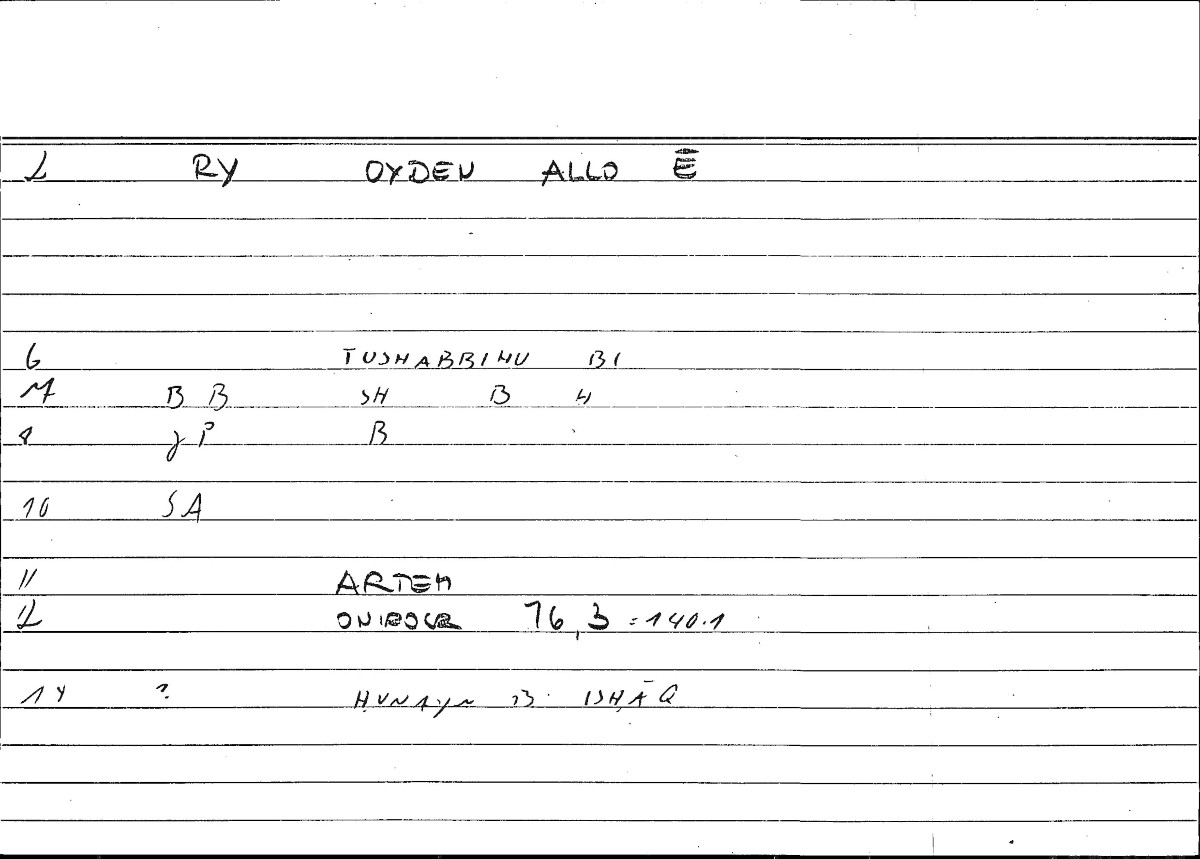 L RY OYDEN ALLO Ē
6 TUSHABBIHU BI
7 B B SH B H
8 γ P B
10 SA
11 ARTEM
12 ONIROCR 76,3 = 140.1
14 ? ḤUNAYN B. ISḤĀQ